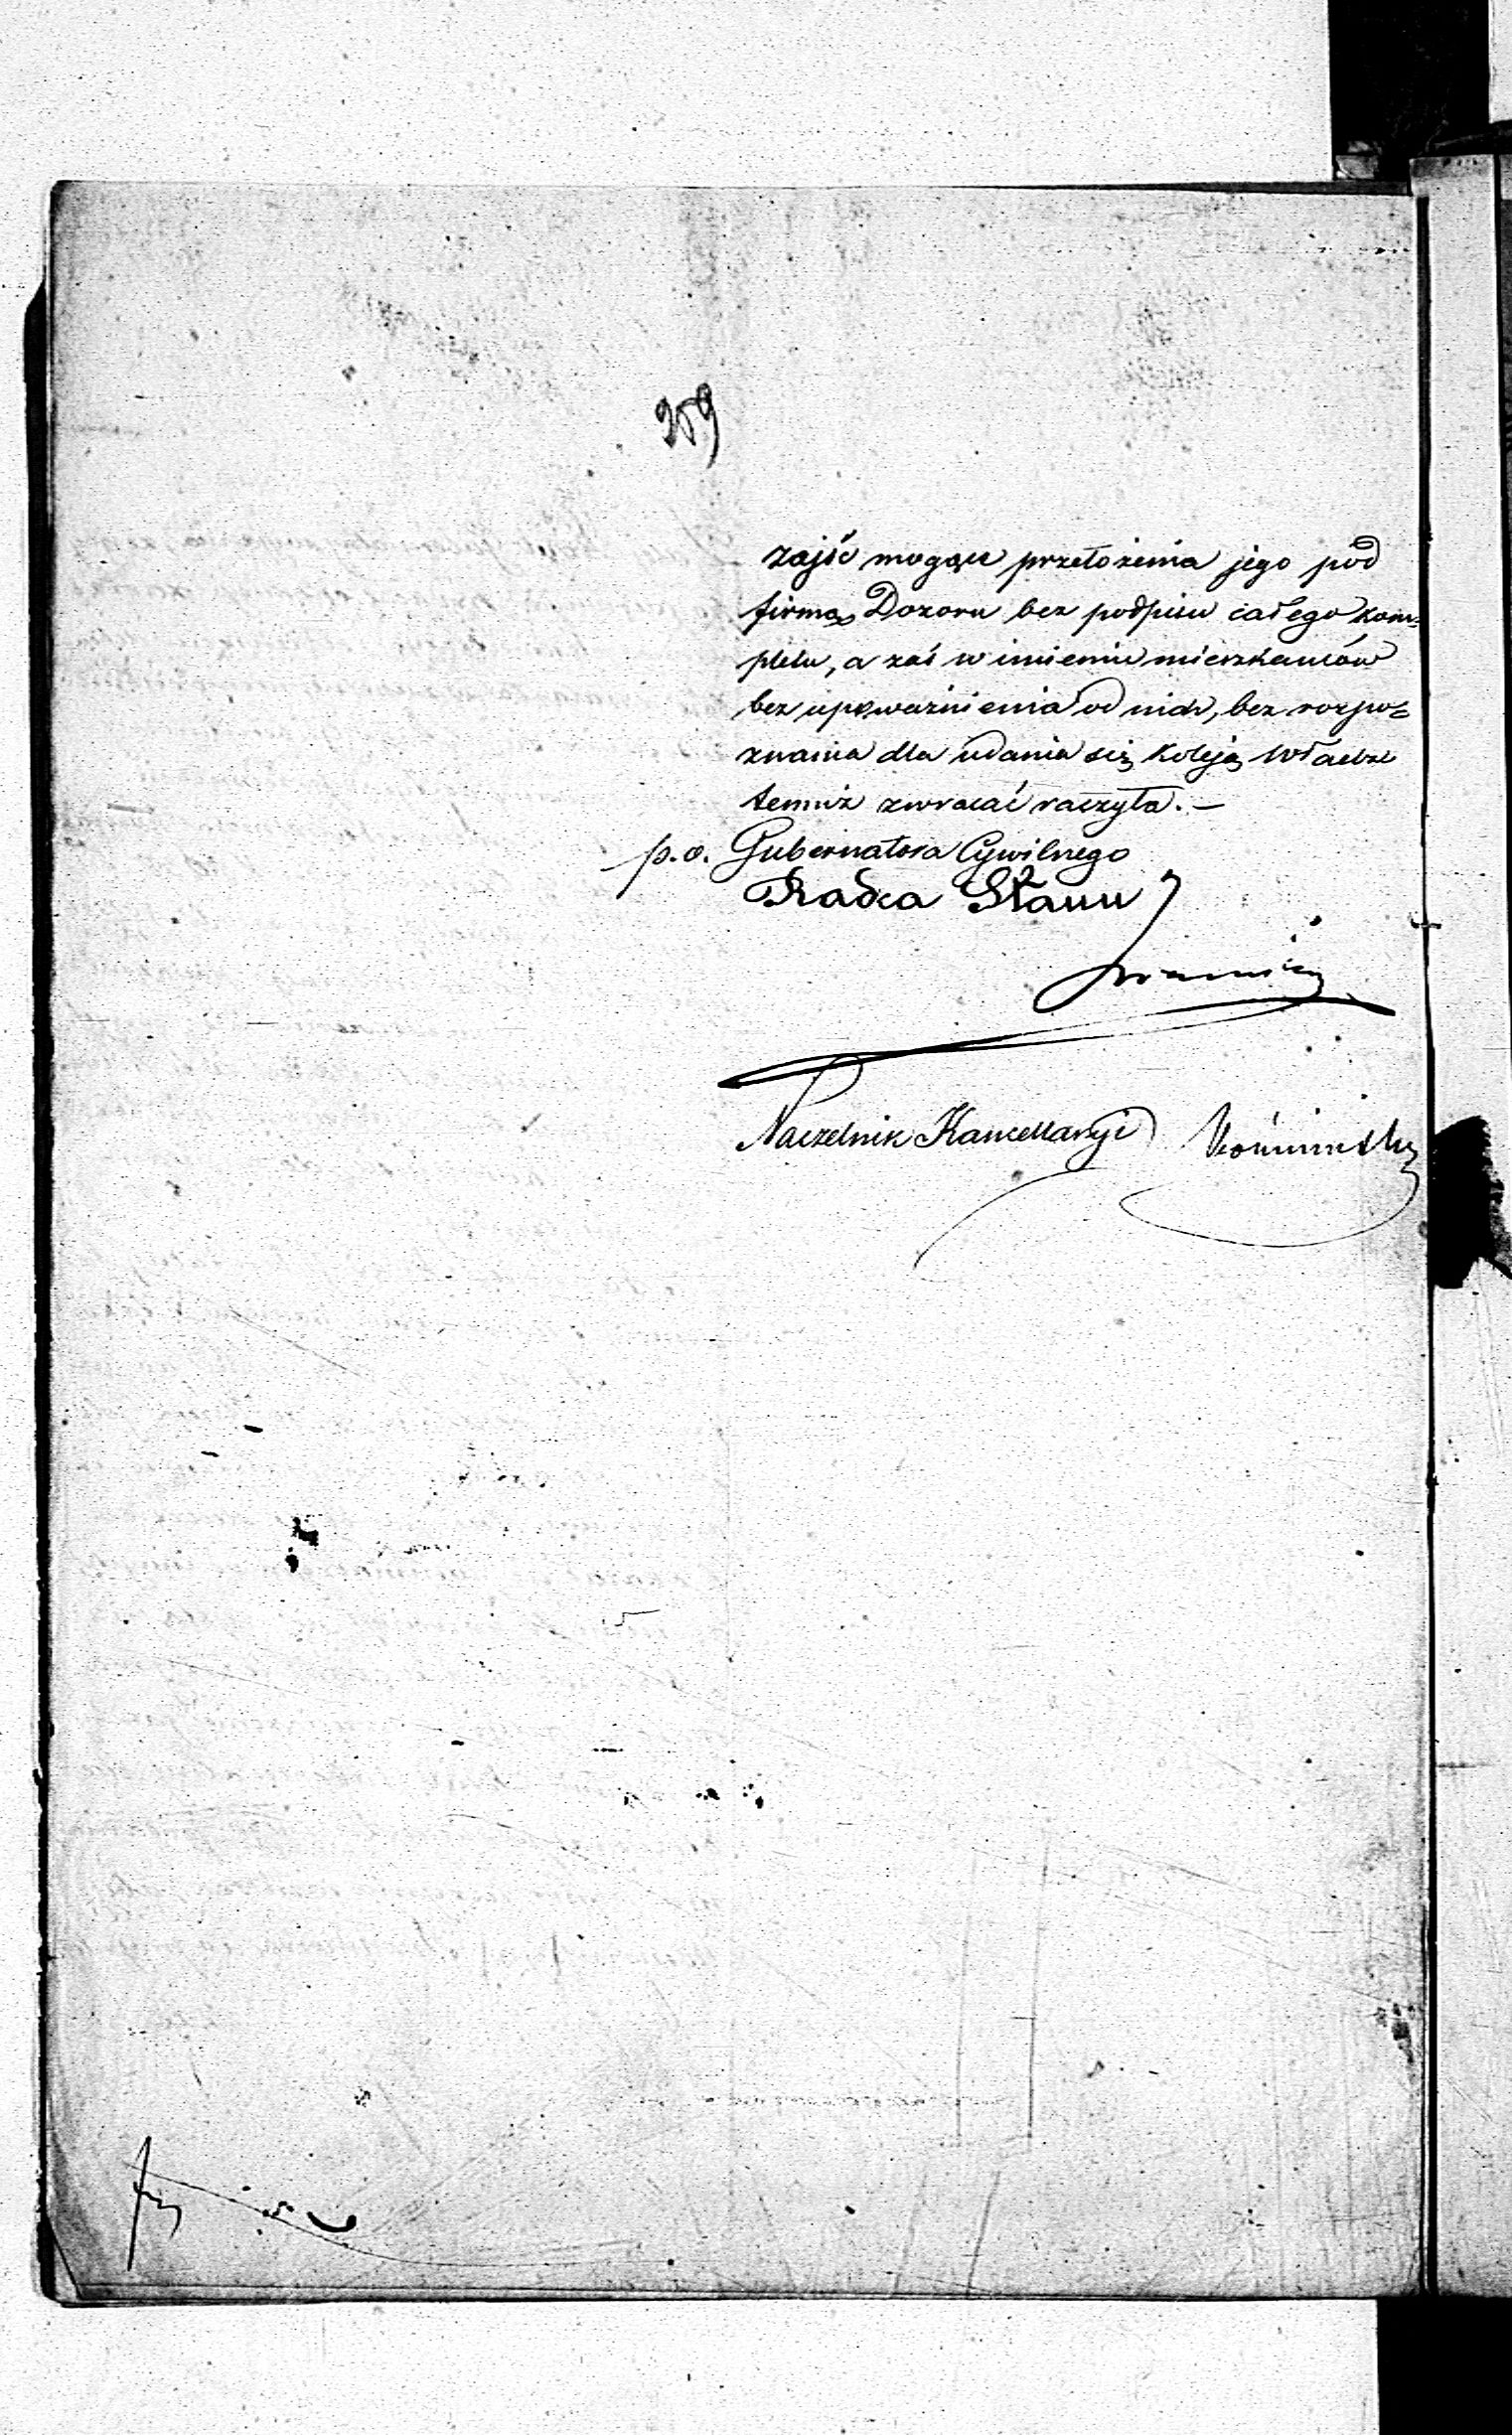 259
zajść mogące przełożenia jego pod
firmą Dozoru bez podpisu całego kom-
pletu, a zaś w imieniu mieszkańców
bez upoważnienia od nich, bez rozpo-
znania dla udania się koleją Władz
temuż zwracać raczyła. —
p.o. Gubernatora Cywilnego
Radca Stanu
Naczelnik Kancellaryi